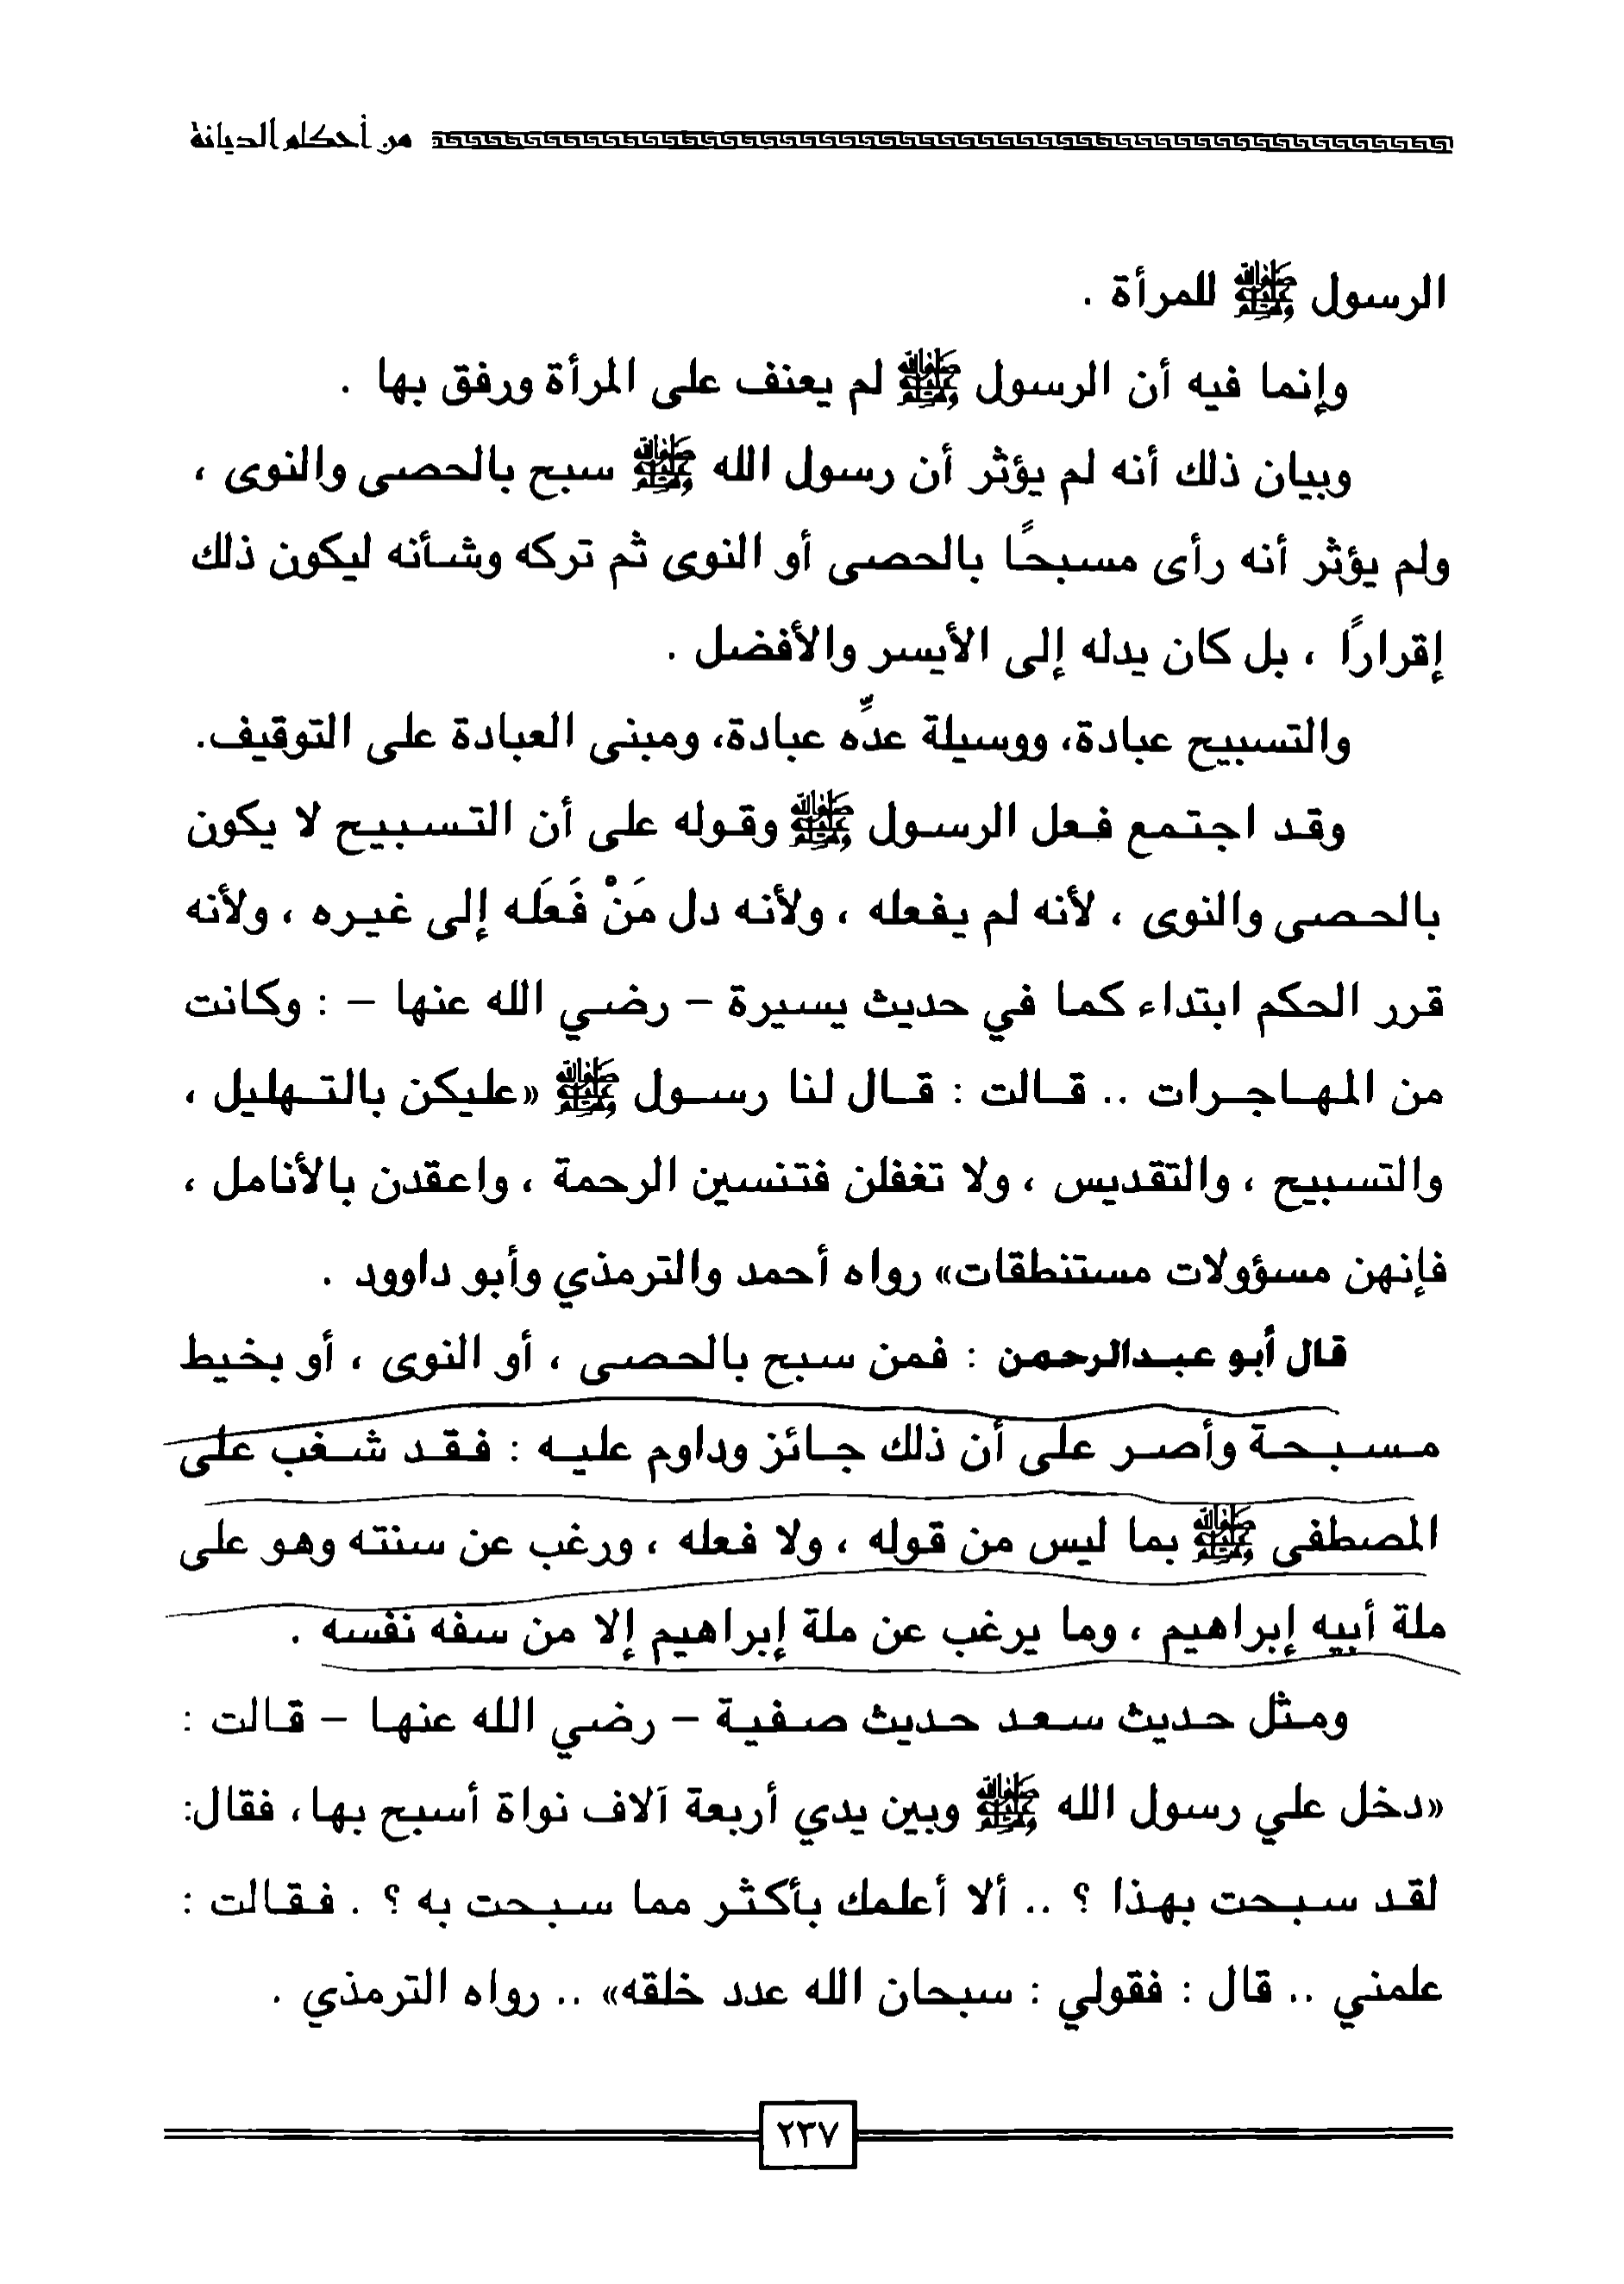 من أحكام الديانة
الرسول ﷺ للمرأة .
وإنما فيه أن الرسول ﷺ لم يعنف على المرأة ورفق بها .
وبيان ذلك أنه لم يؤثر أن رسول الله ﷺ سبح بالحصى والنوى ،
ولم يؤثر أنه رأى مسبحًا بالحصى أو النوى ثم تركه وشأنه ليكون ذلك
إقرارًا ، بل كان يدله إلى الأيسر والأفضل .
والتسبيح عبادة، ووسيلة عدِّه عبادة، ومبنى العبادة على التوقيف.
وقد اجتمع فعل الرسول ﷺ وقوله على أن التسبيح لا يكون
بالحصى والنوى ، لأنه لم يفعله ، ولأنه دل مَنْ فَعَله إلى غيره ، ولأنه
قرر الحكم ابتداء كما في حديث يسيرة - رضي الله عنها - : وكانت
من المهاجرات .. قالت : قال لنا رسول ﷺ «عليكن بالتهليل ،
والتسبيح ، والتقديس ، ولا تغفلن فتنسين الرحمة ، واعقدن بالأنامل ،
فإنهن مسؤولات مستنطقات» رواه أحمد والترمذي وأبو داوود .
قال أبو عبدالرحمن : فمن سبح بالحصى ، أو النوى ، أو بخيط
مسبحة وأصر على أن ذلك جائز وداوم عليه : فقد شغب على
المصطفى ﷺ بما ليس من قوله ، ولا فعله ، ورغب عن سنته وهو على
ملة أبيه إبراهيم ، وما يرغب عن ملة إبراهيم إلا من سفه نفسه .
ومثل حديث سعد حديث صفية - رضي الله عنها - قالت :
«دخل علي رسول الله ﷺ وبين يدي أربعة آلاف نواة أسبح بها، فقال:
لقد سبحت بهذا ؟ .. ألا أعلمك بأكثر مما سبحت به ؟ . فقالت :
علمني .. قال : فقولي : سبحان الله عدد خلقه» .. رواه الترمذي .
٢٣٧